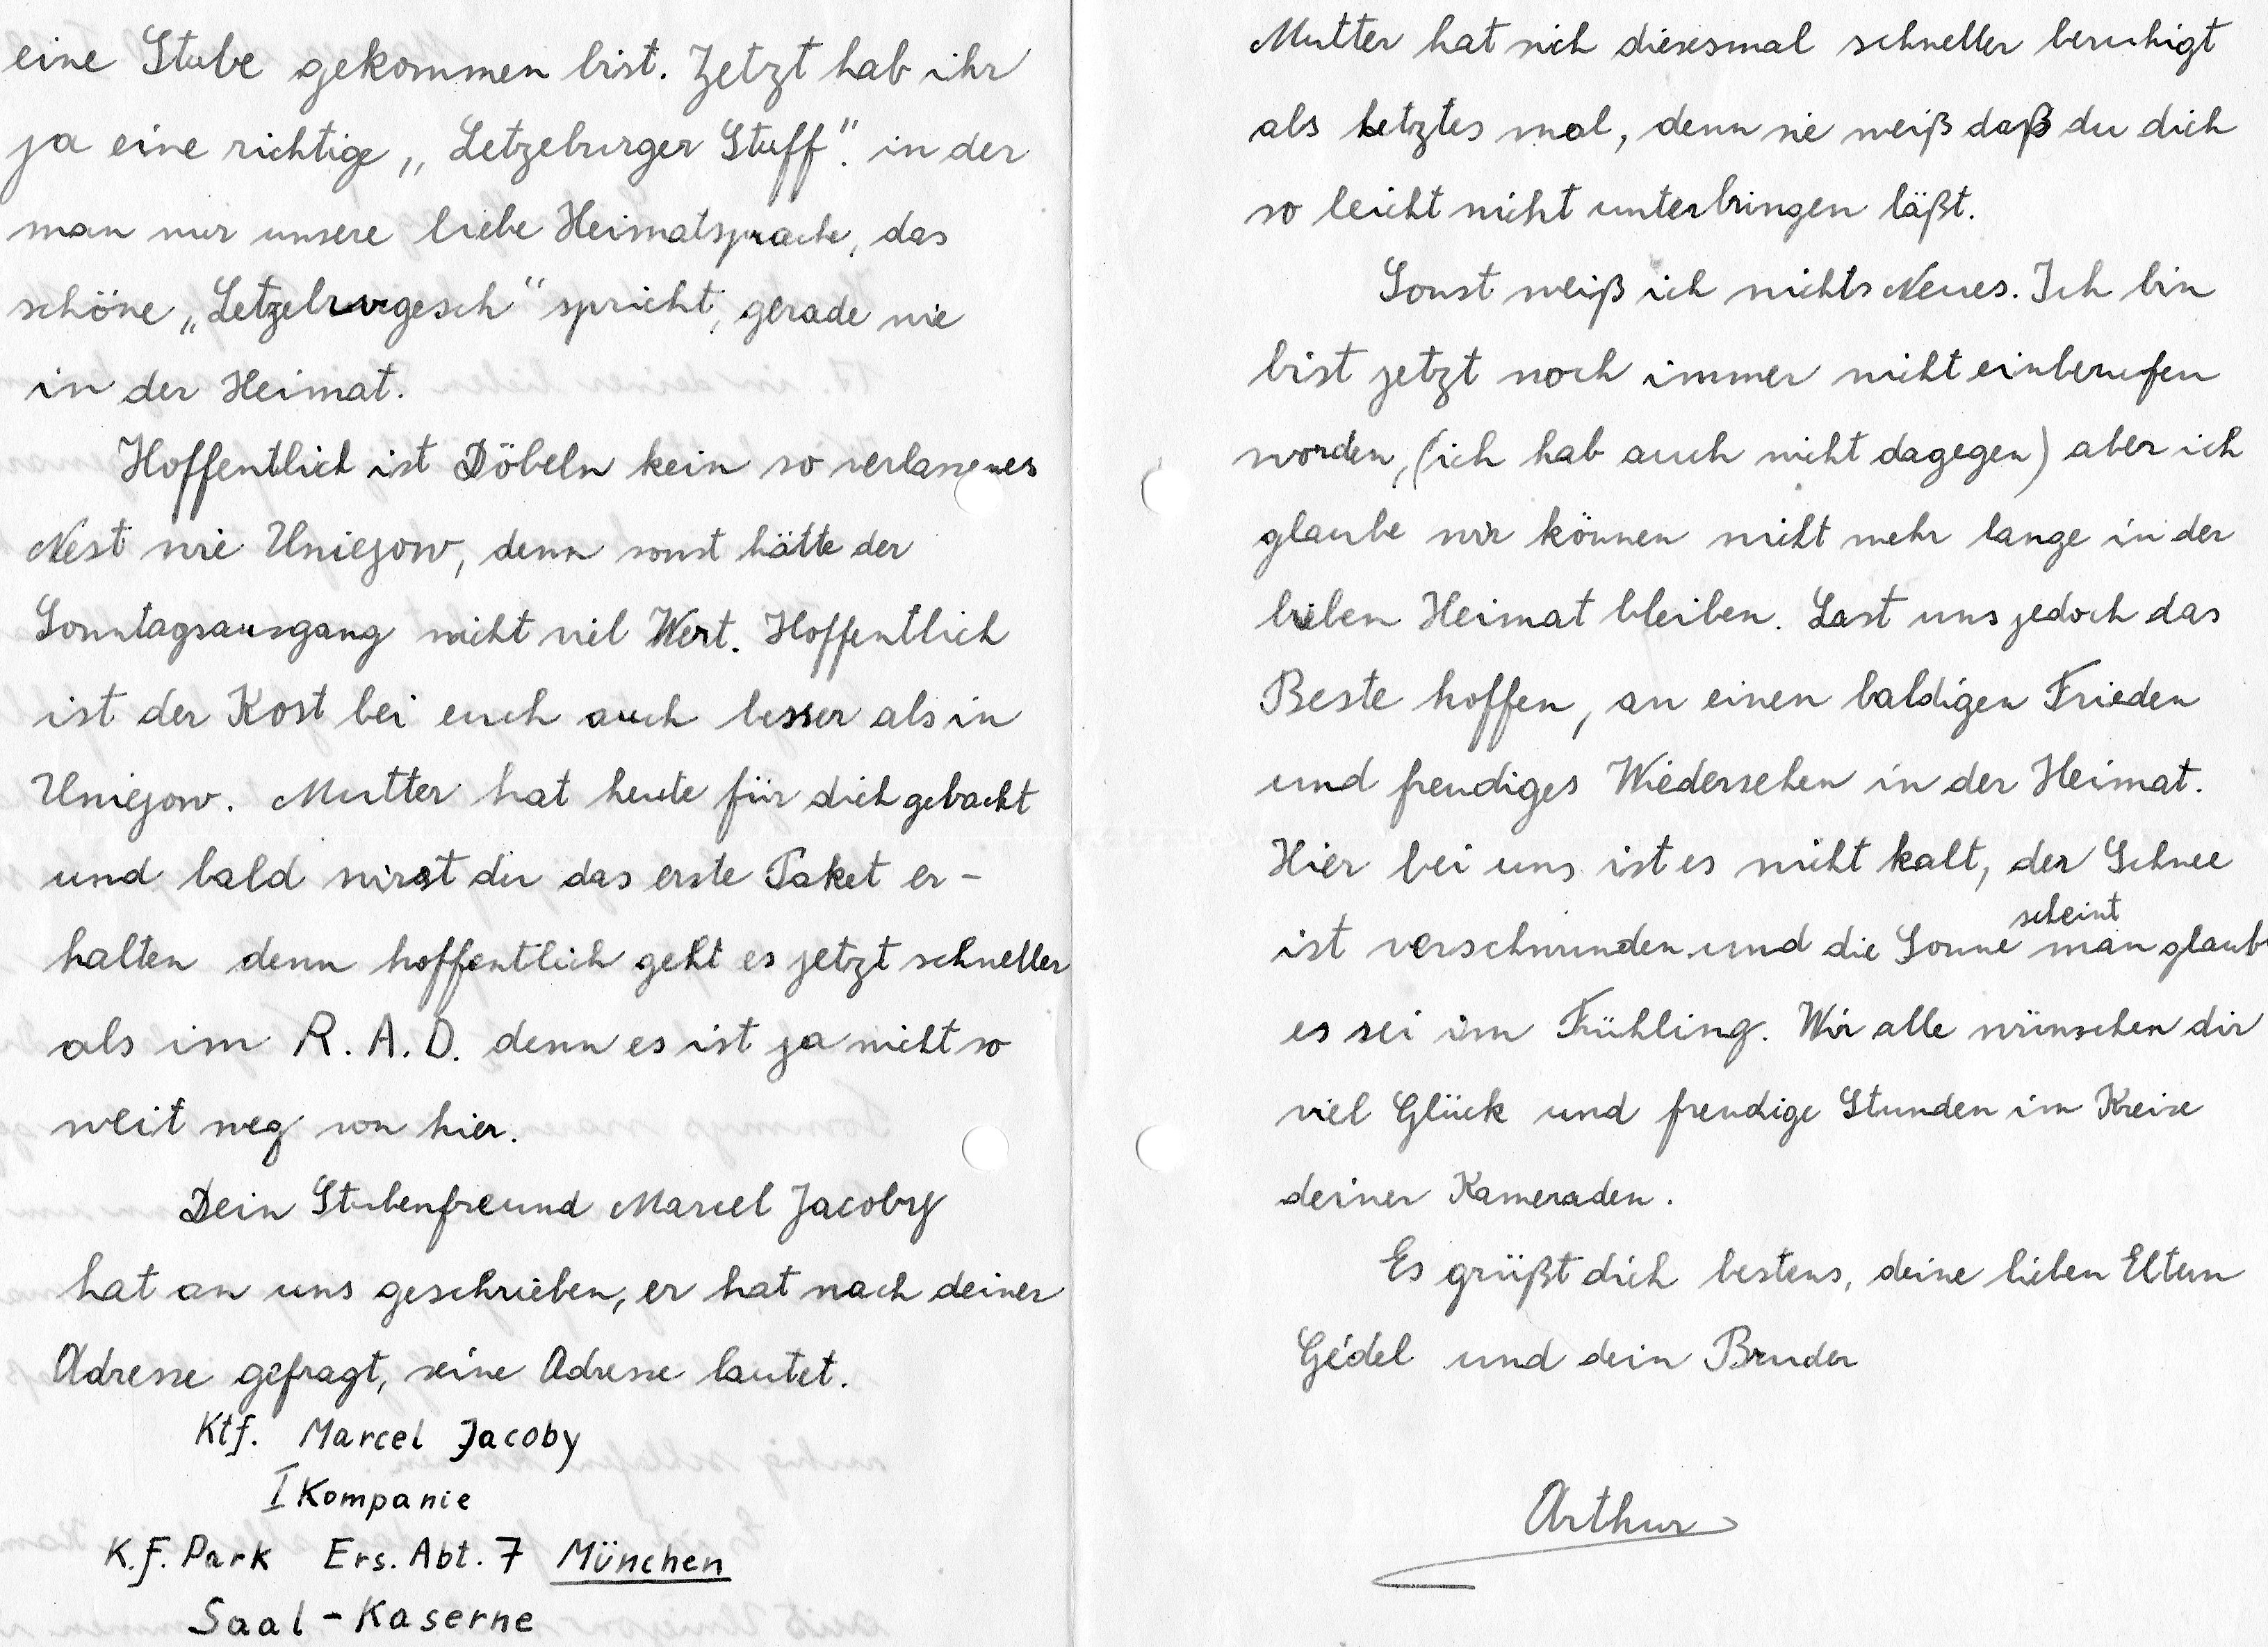 eine Stube gekommen bist. Jetzt hab ihr
ja eine richtige „Letzeburger Stuff". in der
man nur unsere liebe Heimatsprache, das
schöne „Letzeburgesch" spricht, gerade wie
in der Heimat.
Hoffentlich ist Döbeln kein so verlassenes
Nest wie Uniejow, denn sonst hätte der
Sonntagsausgang nicht viel Wert. Hoffentlich
ist der Kost bei euch auch besser als in
Uniejow. Mutter hat heute für dich gebackt
und bald wirst du das erste Paket er-
halten denn hoffentlich geht es jetzt schneller
als im R.A.D. denn es ist ja nicht so
weit weg von hier.
Dein Stubenfreund Marcel Jacoby
hat an uns geschrieben, er hat nach deiner
Adresse gefragt, seine Adresse lautet.
Ktf. Marcel Jacoby
I Kompanie
K.f. Park Ers. Abt. 7 München
Saal-Kaserne
Mutter hat sich diesesmal schneller beruhigt
als letztes mal, denn sie weiß daß du dich
so leicht nicht unterbringen läßt.
Sonst weiß ich nichts Neues. Ich bin
bist jetzt noch immer nicht einberufen
worden, (ich hab auch nicht dagegen) aber ich
glaube wir können nicht mehr lange in der
lieben Heimat bleiben. Last uns jedoch das
Beste hoffen, an einen baldigen Frieden
und freudiges Wiedersehen in der Heimat.
Hier bei uns ist es nicht kalt, der Schnee
ist verschwunden und die Sonne scheint man glaub
es sei im Frühling. Wir alle wünschen dir
viel Glück und freudige Stunden im Kreise
deiner Kameraden.
Es grüßt dich bestens, deine lieben Eltern
Gédel und dein Bruder
Arthur